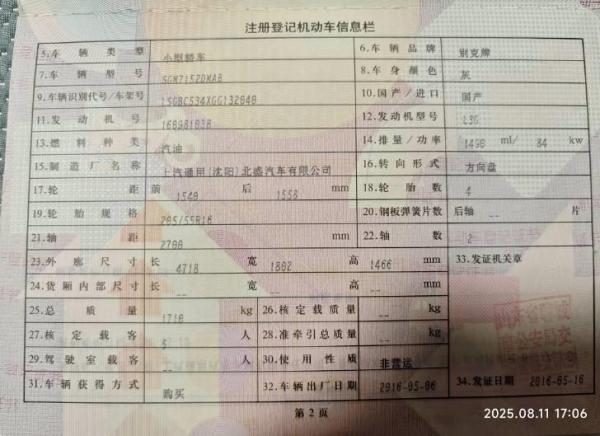 注册登记机动车信息栏
5.车辆类型 小型轿车 6.车辆品牌 别克牌
7.车辆型号 8.车身颜色 灰
9.车辆识别代号/车架号 10.国产/进口 国产
11.发动机号 12.发动机型号
13.燃料种类 汽油 14.排量/功率 ml/ 84 kw
15.制造厂名称 上汽通用(沈阳)北盛汽车有限公司 16.转向形式 方向盘
17.轮距 前 1549 后 1558 mm 18.轮胎数 4
19.轮胎规格 205/55R16 20.钢板弹簧片数 后轴 -- 片
21.轴距 2700 mm 22.轴数 2
23.外廓尺寸 长 4718 宽 1802 高 1466 mm 33.发证机关章
24.货厢内部尺寸 长 -- 宽 -- 高 -- mm
25.总质量 1710 kg 26.核定载质量 -- kg
27.核定载客 5 人 28.准牵引总质量 -- kg
29.驾驶室载客 -- 人 30.使用性质 非营运
31.车辆获得方式 购买 32.车辆出厂日期 2016-05-06 34.发证日期 2016-05-16
第2页
2025.08.11 17:06